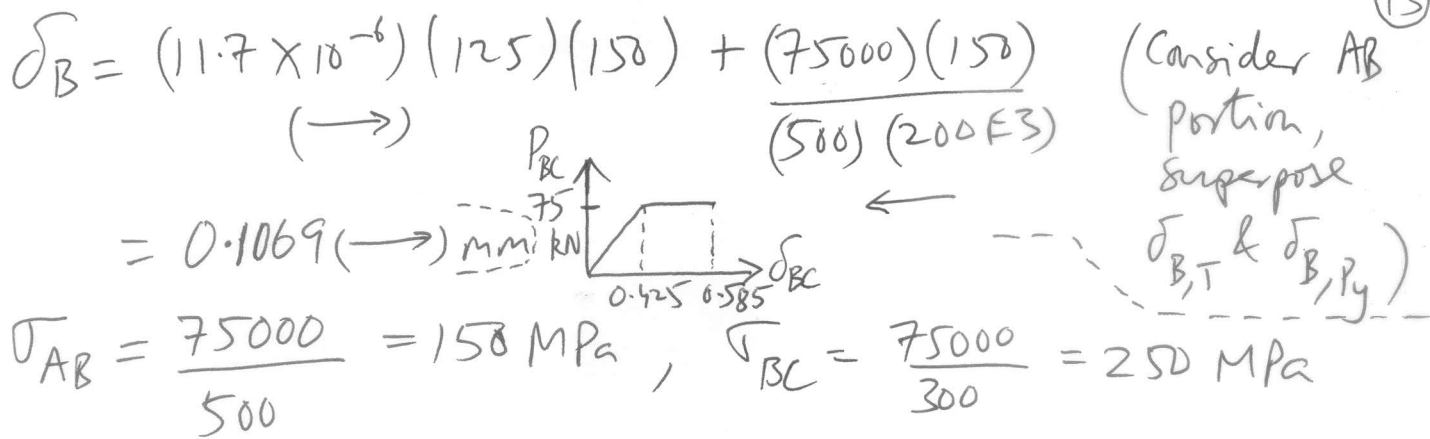 13
δ_B = (11.7 × 10⁻⁶)(125)(150) + (75000)(150) / (500)(200E3) (Consider AB
(→) ← portion,
superpose
δ_B,T & δ_B,Py)
= 0.1069 (→) mm
P_BC
75
kN
0.425 0.585 δ_BC
σ_AB = 75000 / 500 = 150 MPa, σ_BC = 75000 / 300 = 250 MPa